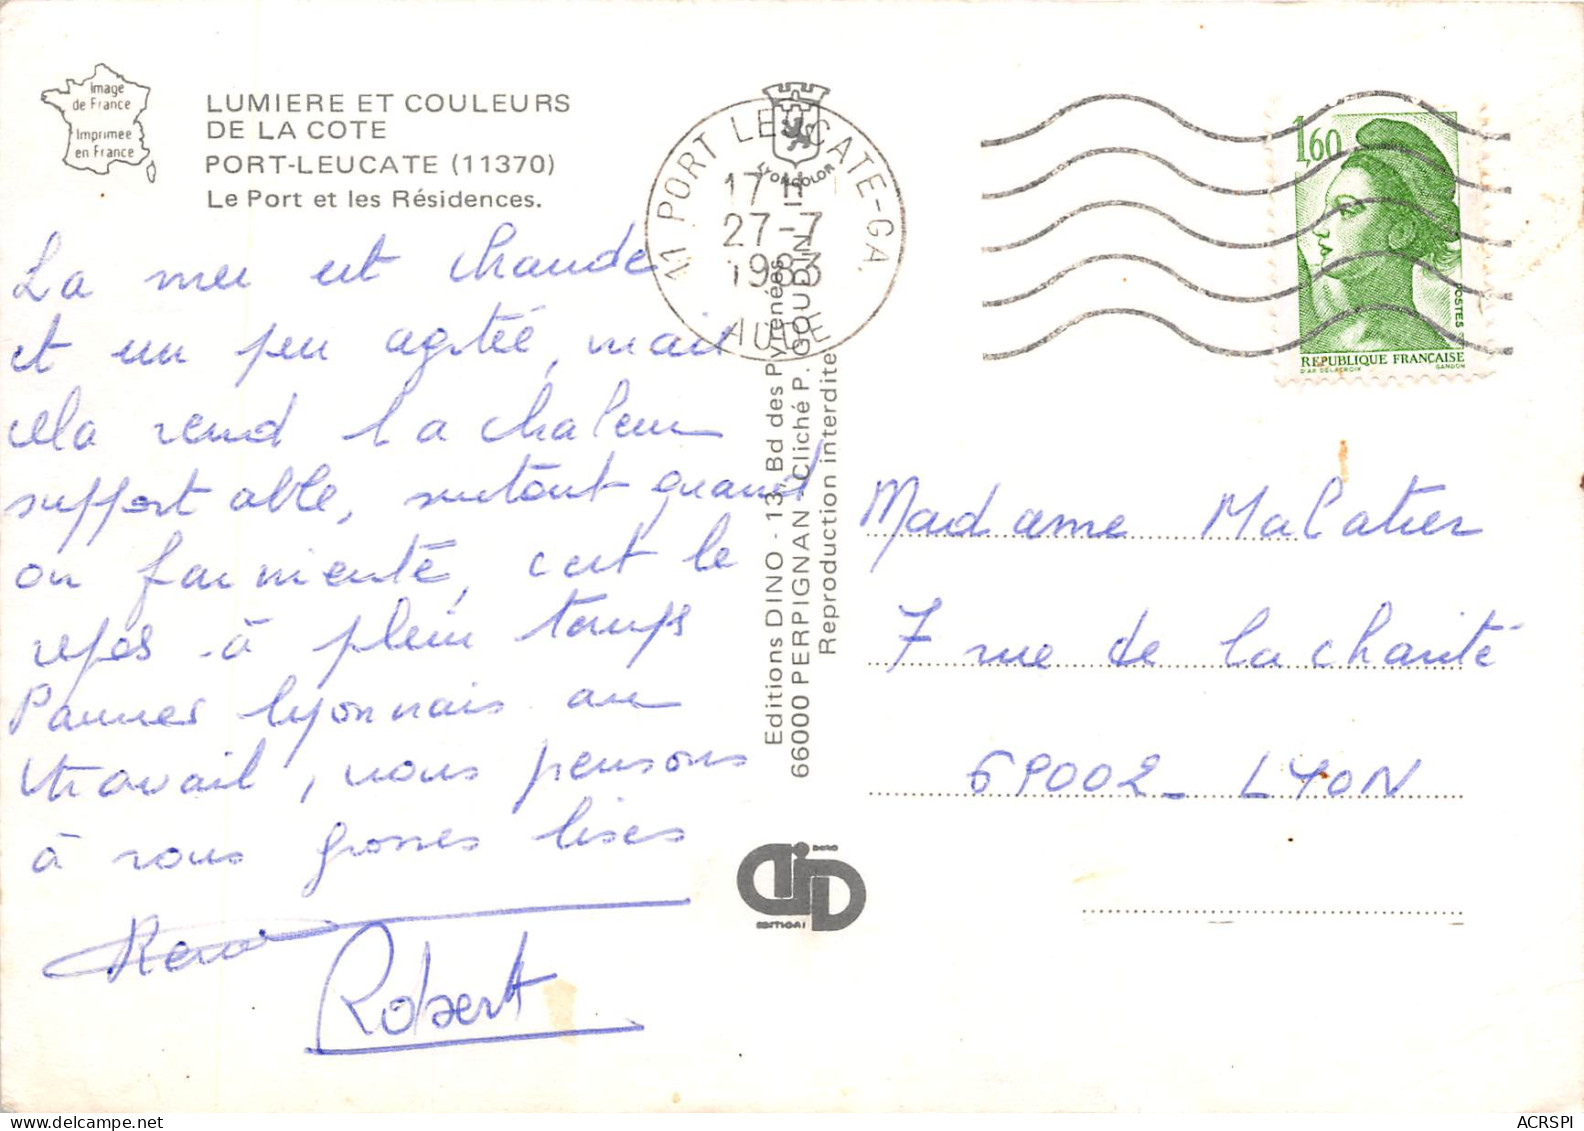 Image
de France
Imprimée
en France
LUMIERE ET COULEURS
DE LA COTE
PORT-LEUCATE (11370)
Le Port et les Résidences.
La mer est chaude
et un peu agitée, mais
cela rend la chaleur
supportable, surtout quand
on farniente, c'est le
repos à plein temps
Pauvres lyonnais au
travail, nous pensons
à vous grosses bises
Robert
LYONCOLOR
11 PORT LEUCATE-GA.
17 H
27-7
1983
AUDE
Editions DINO - 13, Bd des Pyrénées
66000 PERPIGNAN - Cliché P. GOUDIN
Reproduction interdite
DINO
EDITION
1,60
POSTES
REPUBLIQUE FRANÇAISE
D'AP. DELACROIX GANDON
Madame Malatier
7 rue de la charité
69002 - LYON
ACRSPI